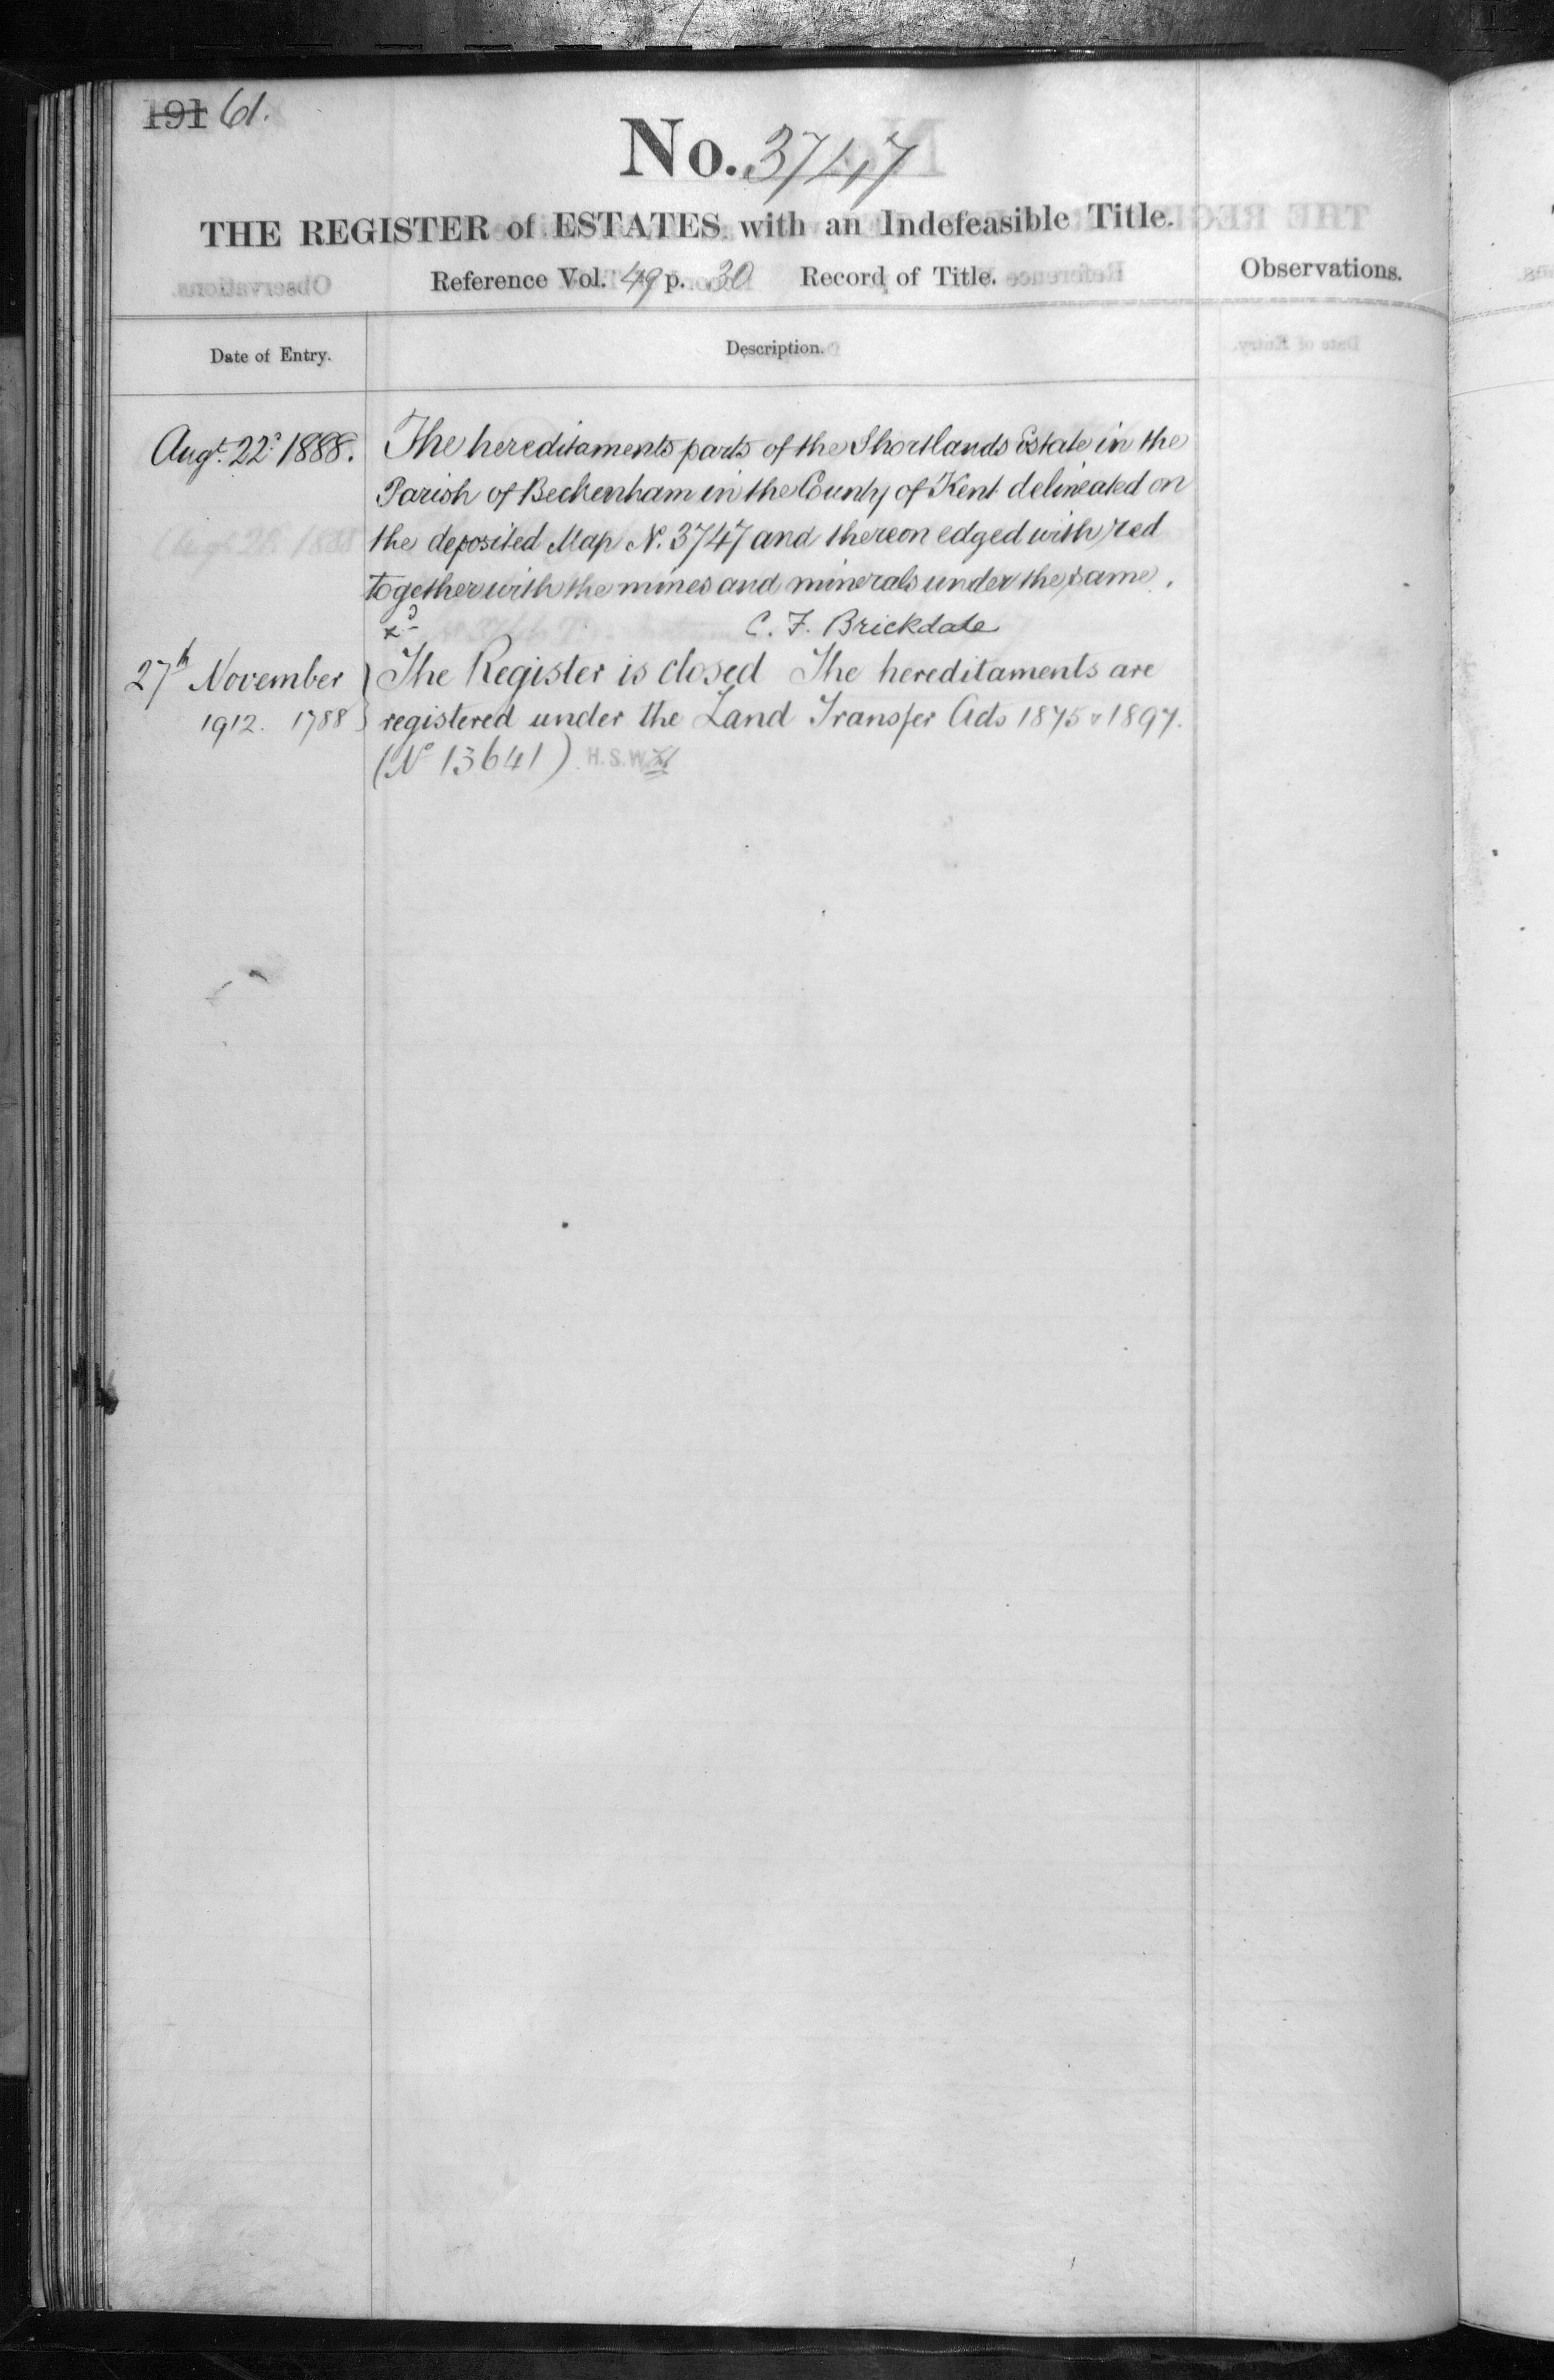 191 61.
No. 3747
THE REGISTER of ESTATES with an Indefeasible Title.
Reference Vol. 49 p. 30 Record of Title.
Observations.
Date of Entry.
Description.
Augt. 22d 1888.
The hereditaments parts of the Shortlands Estate in the
Parish of Beckenham in the County of Kent delineated on
the deposited Map No. 3747 and thereon edged with red
together with the mines and minerals under the same.
C. F. Brickdale
27th November
1912. 1788
The Register is closed The hereditaments are
registered under the Land Transfer Acts 1875 & 1897.
(No 13641) H.S.W.